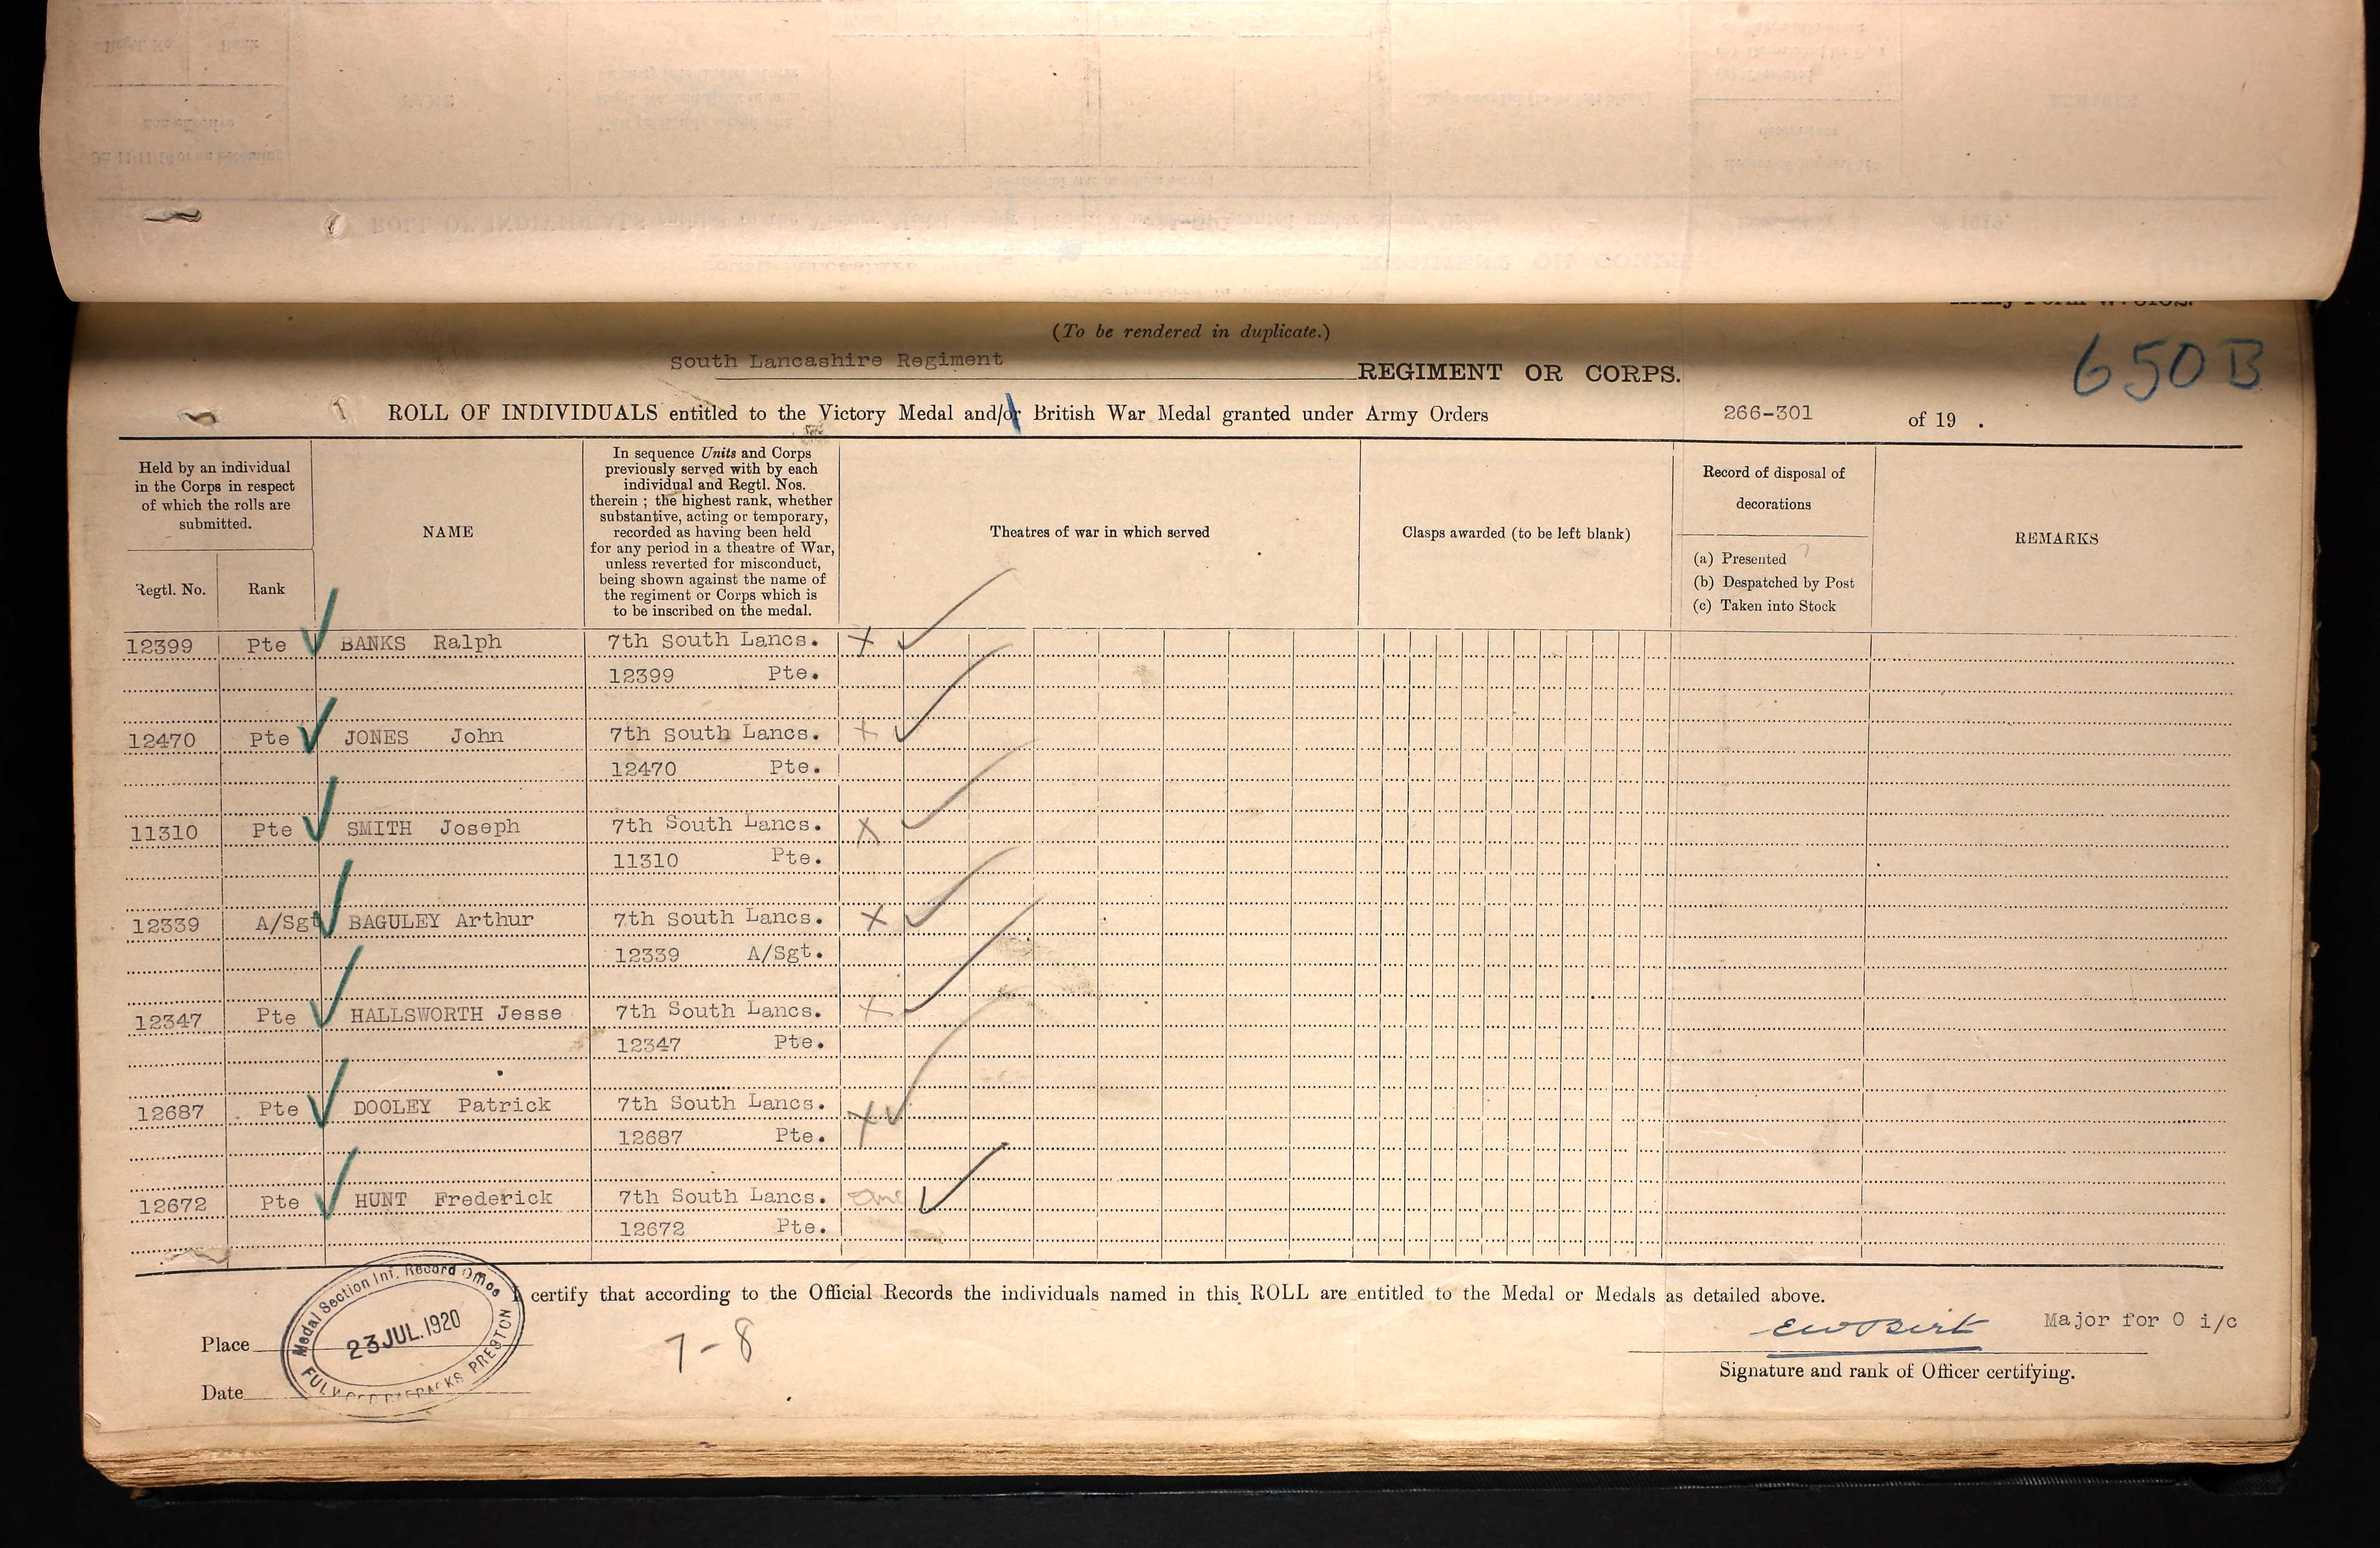 (To be rendered in duplicate.)
650B
South Lancashire Regiment REGIMENT OR CORPS.
ROLL OF INDIVIDUALS entitled to the Victory Medal and/or British War Medal granted under Army Orders 266-301 of 19 .
Held by an individual
in the Corps in respect
of which the rolls are
submitted.
Regtl. No. Rank
NAME
In sequence Units and Corps
previously served with by each
individual and Regtl. Nos.
therein ; the highest rank, whether
substantive, acting or temporary,
recorded as having been held
for any period in a theatre of War,
unless reverted for misconduct,
being shown against the name of
the regiment or Corps which is
to be inscribed on the medal.
Theatres of war in which served
Clasps awarded (to be left blank)
Record of disposal of
decorations
(a) Presented
(b) Despatched by Post
(c) Taken into Stock
REMARKS
12399 Pte BANKS Ralph 7th South Lancs. X
12399 Pte.
12470 Pte JONES John 7th South Lancs. X
12470 Pte.
11310 Pte SMITH Joseph 7th South Lancs. X
11310 Pte.
12339 A/Sgt BAGULEY Arthur 7th South Lancs. X
12339 A/Sgt.
12347 Pte HALLSWORTH Jesse 7th South Lancs. X
12347 Pte.
12687 Pte DOOLEY Patrick 7th South Lancs. X
12687 Pte.
12672 Pte HUNT Frederick 7th South Lancs.
12672 Pte.
I certify that according to the Official Records the individuals named in this ROLL are entitled to the Medal or Medals as detailed above.
Medal Section Inf. Record Office
23 JUL. 1920
PRESTON
Place
Date
7-8
Major for O i/c
Signature and rank of Officer certifying.